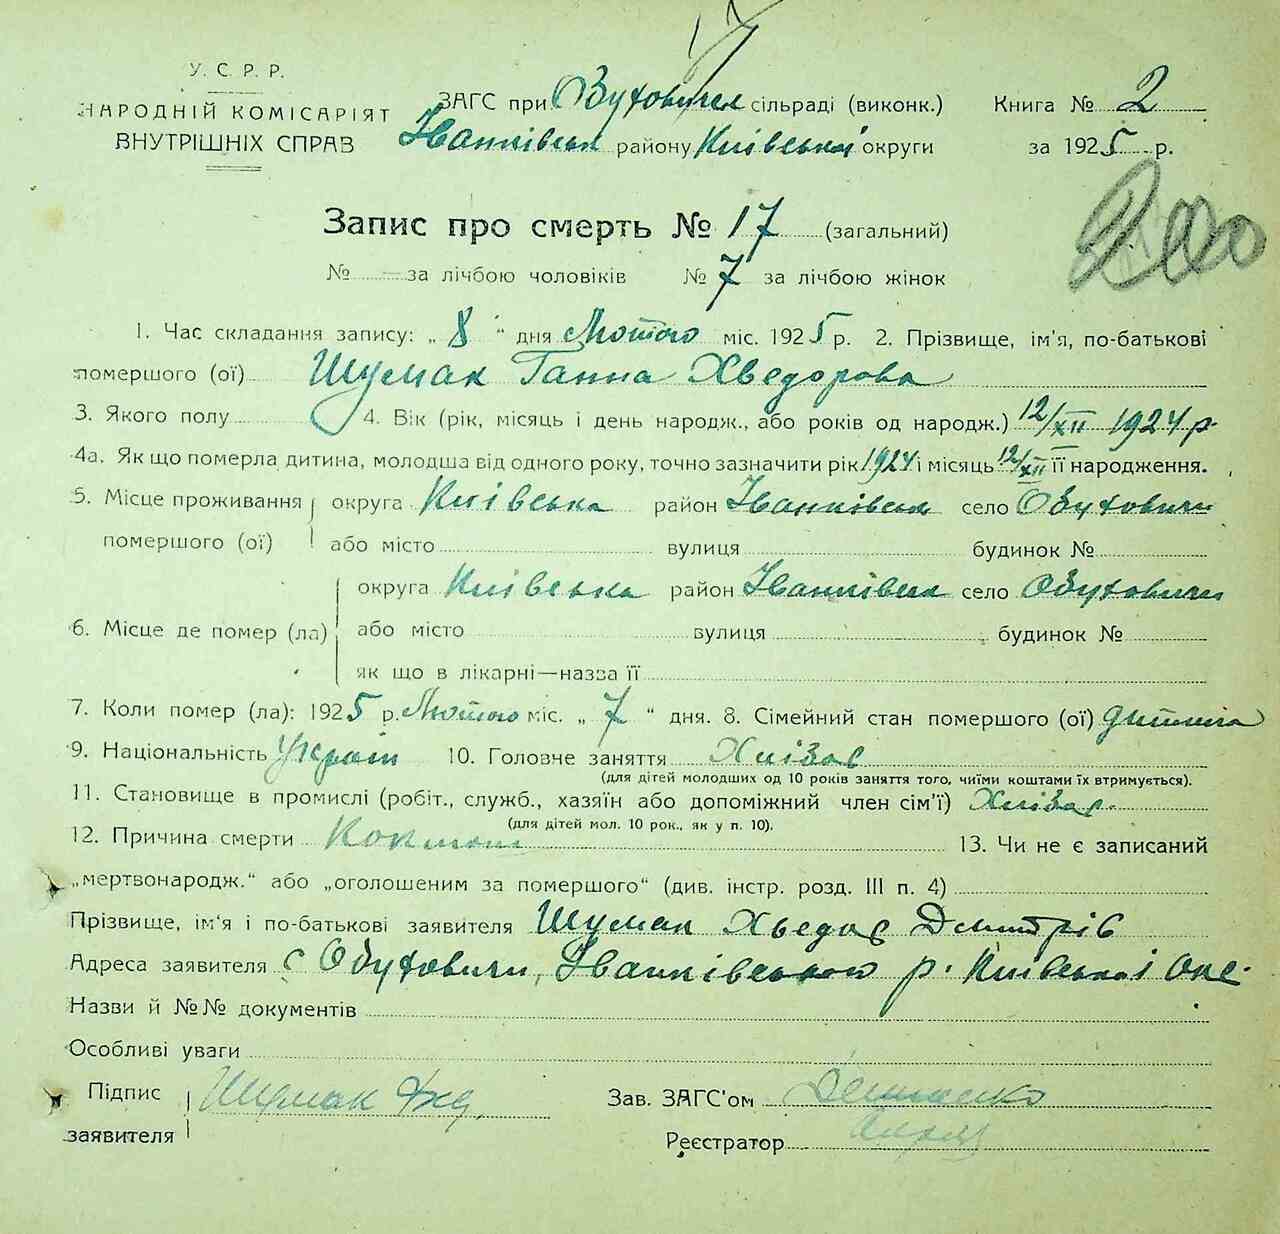 У. С. Р. Р.
НАРОДНІЙ КОМІСАРІЯТ
ВНУТРІШНІХ СПРАВ
ЗАГС при Обуховицькій сільраді (виконк.)
Іванківськ району Київської округи
Книга № 2
за 1925 р.
Запис про смерть № 17 (загальний)
№ — за лічбою чоловіків № 7 за лічбою жінок
1. Час складання запису: „ 8 " дня Лютого міс. 1925 р. 2. Прізвище, ім'я, по-батькові
помершого (ої) Шумак Ганна Хведорова
3. Якого полу 4. Вік (рік, місяць і день народж., або років од народж.) 12/XII 1924 р
4а. Як що померла дитина, молодша від одного року, точно зазначити рік 1924 і місяць 12/XII її народження.
5. Місце проживання помершого (ої) округа Київська район Іванківськ село Обуховичи
або місто вулиця будинок №
6. Місце де помер (ла) округа Київська район Іванківськ село Обуховичи
або місто вулиця будинок №
як що в лікарні—назва її
7. Коли помер (ла): 1925 р. Лютого міс. „ 7 " дня. 8. Сімейний стан помершого (ої) дитина
9. Національність Україн 10. Головне заняття Хлізас
(для дітей молодших од 10 років заняття того, чиїми коштами їх втримується).
11. Становище в промислі (робіт., служб., хазяїн або допоміжний член сім'ї)
(для дітей мол. 10 рок., як у п. 10).
12. Причина смерти Коклюш 13. Чи не є записаний
„мертвонародж." або „оголошеним за помершого" (див. інстр. розд. III п. 4)
Прізвище, ім'я і по-батькові заявителя Шумак Хведор Дмитрів
Адреса заявителя с Обуховичи, Іванківського р. Київської окр.
Назви й №№ документів
Особливі уваги
Підпис заявителя Шумак
Зав. ЗАГС'ом
Реєстратор